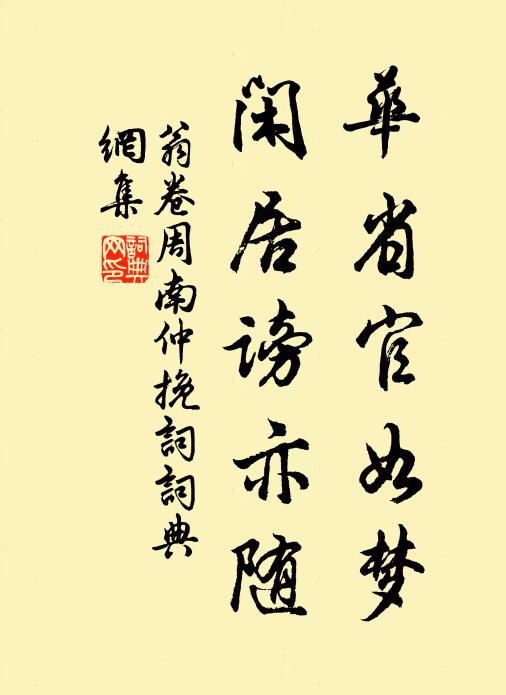 華省官如梦
闲居謗亦随
翁卷周南仲挽詞詞典
網集
詞典
网印